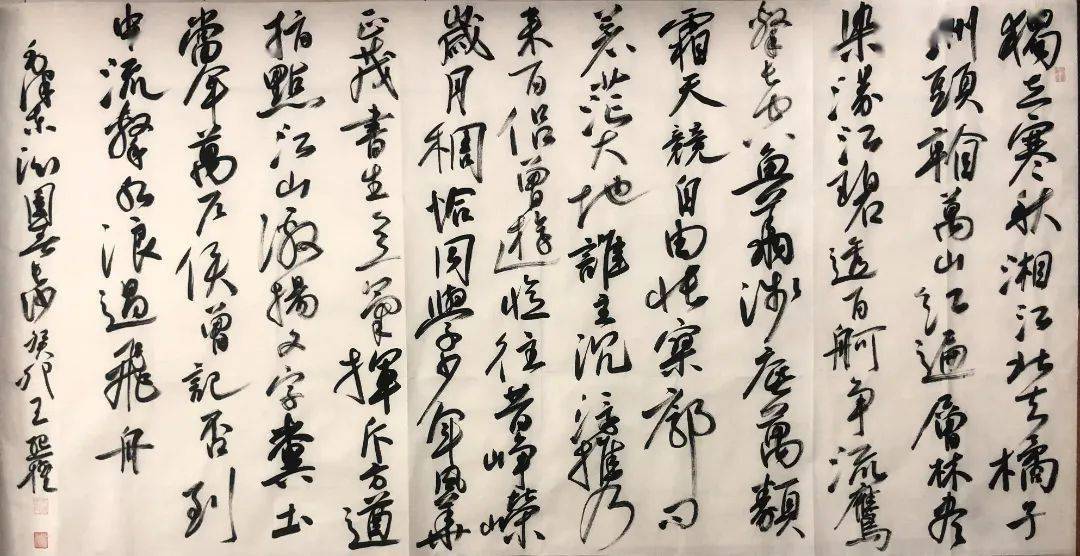 獨立寒秋湘江北去橘子
洲頭看萬山紅遍層林盡
染漫江碧透百舸争流鷹
擊長空魚翔淺底萬類
霜天競自由悵寥廓問
蒼茫大地誰主沉浮攜
来百侣曾游憶往昔崢嶸
歲月稠恰同學少年風華
正茂書生意氣揮斥方遒
指點江山激揚文字糞土
當年萬户侯曾記否到
中流擊水浪遏飛舟
毛澤東沁園春長沙癸卯王